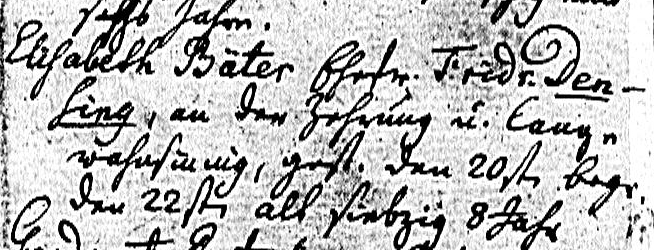 sechs Jahr.
Elisabeth Bäter Ehefr. Fridr. Den-
king, an der Zehrung u. lang
wahnsinnig, gest. den 20st. begr.
den 22st. alt siebzig 8 Jahr